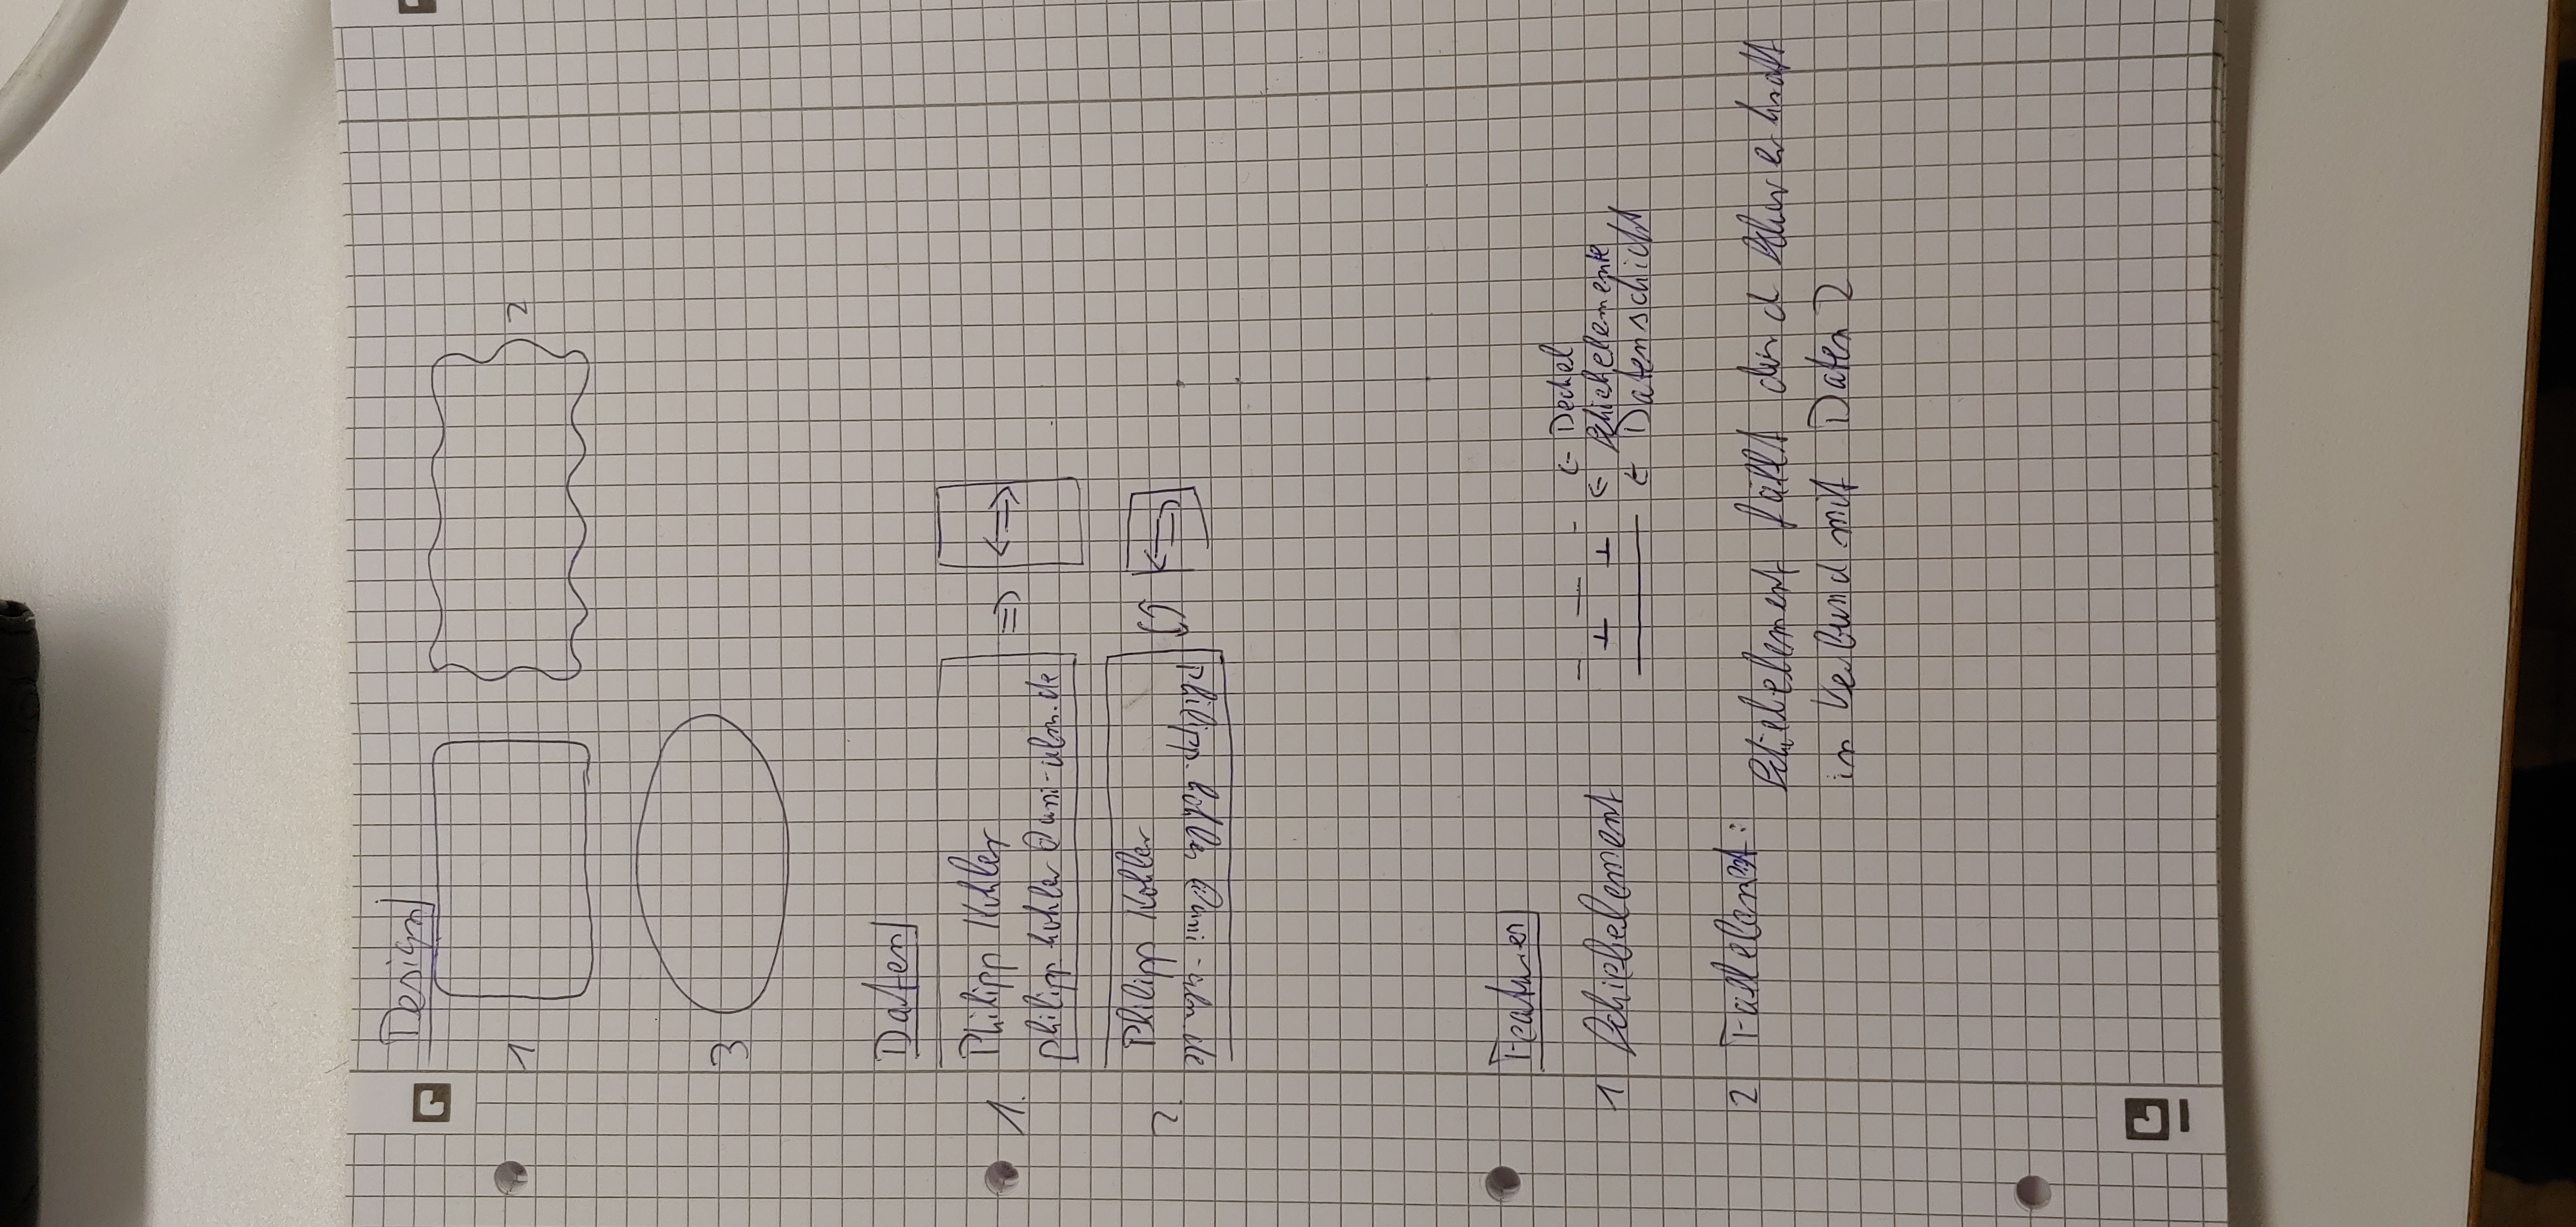 Design
1
2
3
Daten
1. Philipp Kohler
philipp.kohler@uni-ulm.de
2. Philipp Kohler
philipp.kohler@uni-ulm.de
Features
1 Schiebelement
← Deckel
← Schiebelemente
← Datenschicht
2 Fallelement:
Schiebelement fällt durch Schwerkraft
in Verbund mit Daten 2